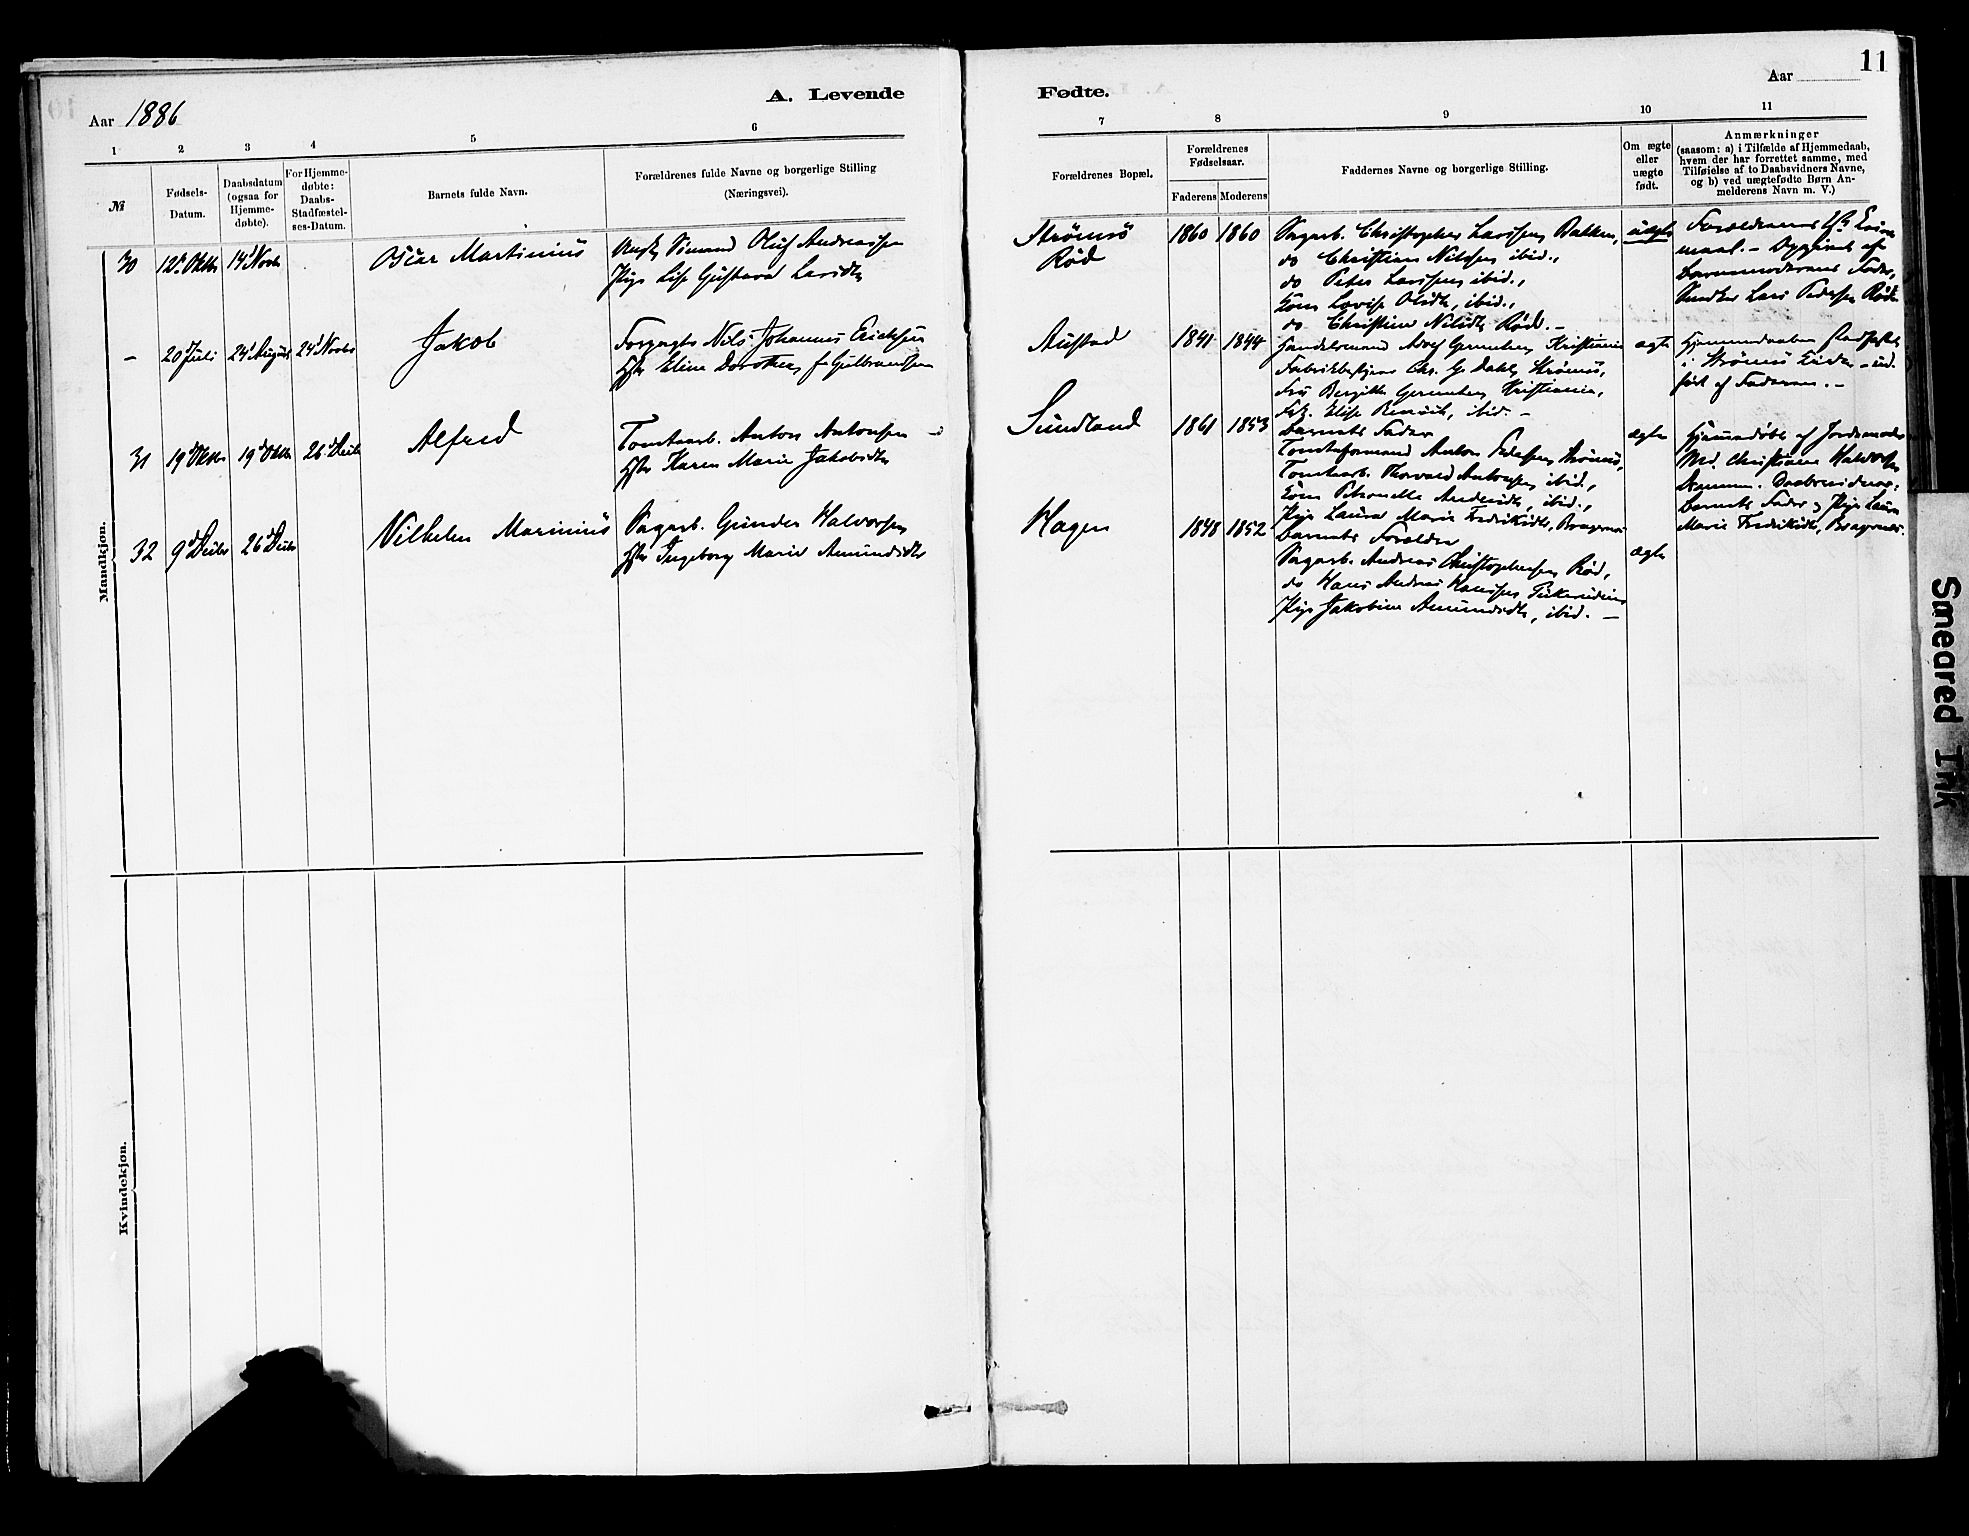 11
Aar 1886
A. Levende
Fødte.
Aar
1 2 3 4 5 6
7 8 9 10 11
№
Fødsels-
Datum.
Daabsdatum
(ogsaa for
Hjemme-
døbte).
For Hjemme-
døbte:
Daabs-
Stadfæstel-
ses-Datum.
Barnets fulde Navn.
Forældrenes fulde Navne og borgerlige Stilling
(Næringsvei).
Forældrenes Bopæl.
Forældrenes
Fødselsaar.
Faderens Moderens
Faddernes Navne og borgerlige Stilling.
Om ægte
eller
uægte
født.
Anmærkninger
(saasom: a) i Tilfælde af Hjemmedaab,
hvem der har forrettet samme, med
Tilføielse af to Daabsvidners Navne,
og b) ved uægtefødte Børn An-
melderens Navn m. V.)
Mandkjøn.
30
12te Oktbr
14d Novbr
Oscar Martinius
Sømand Oluf Andreassen
Pige Lise Gustava Larsdtr
Strømsø
Rød
1860 1860
Sagarb. Christopher Larssen, Bakken,
do Christian Nilssen ibid.,
do Peter Larssen, ibid.,
Kone Lovise Olsdtr, ibid.,
do Christine Nilsdtr Rød. –
uægte
Forældrenes 1ste
maal. – Opgivet af
Barnemoderens Fader,
Snedker Lars Pedersen Rød.
–
20d Juli
24d August
24d Novbr
Jakob
Forgagts Nils Johannes Ericksen
Hstr Eline Dorothea f. Gulbrandsen
Austad
1841 1844
Handelsmand Adolf Kristiania
Fabrikbestyrer Chr. G. Dahl, Strømsø,
Kristiania,
Frk. Elise ibid. –
ægte
Hjemmedaaben stadfæstet
i Strømsø Kirke – ind-
ført af Faderen. –
31
19d Oktbr
19d Oktbr
26d Decbr
Alfred
Tomtearb. Anton Antonsen
Hstr Karen Marie Jakobsdtr
Sundland
1861 1853
Barnets Fader
Tomteformand Anton Pedersen, Strømsø,
Tomtearb. Thorvald Antonsen, ibid.,
Kone Petronelle Andersdtr, ibid.,
Pige Laura Marie Fredriksdtr, Bragernes
ægte
Hjemmedøbt af Jordemoder
Md. Christiane Halvorsen
Drammen. Daabsvidner:
Barnets Fader og Pige Laura
Marie Fredriksdtr, Bragernes.
32
9d Decbr
26d Decbr
Vilhelm Marinius
Sagarb. Gunder Halvorsen
Hstr Ingeborg Marie Amundsdtr
Hagen
1848 1852
Barnets Forældre
Sagarb. Andreas Christophersen Rød,
do Hans Andreas Hanssen
Pige Jakobine Amundsdtr, ibid. –
ægte
Kvindekjøn.
Smeared Ink